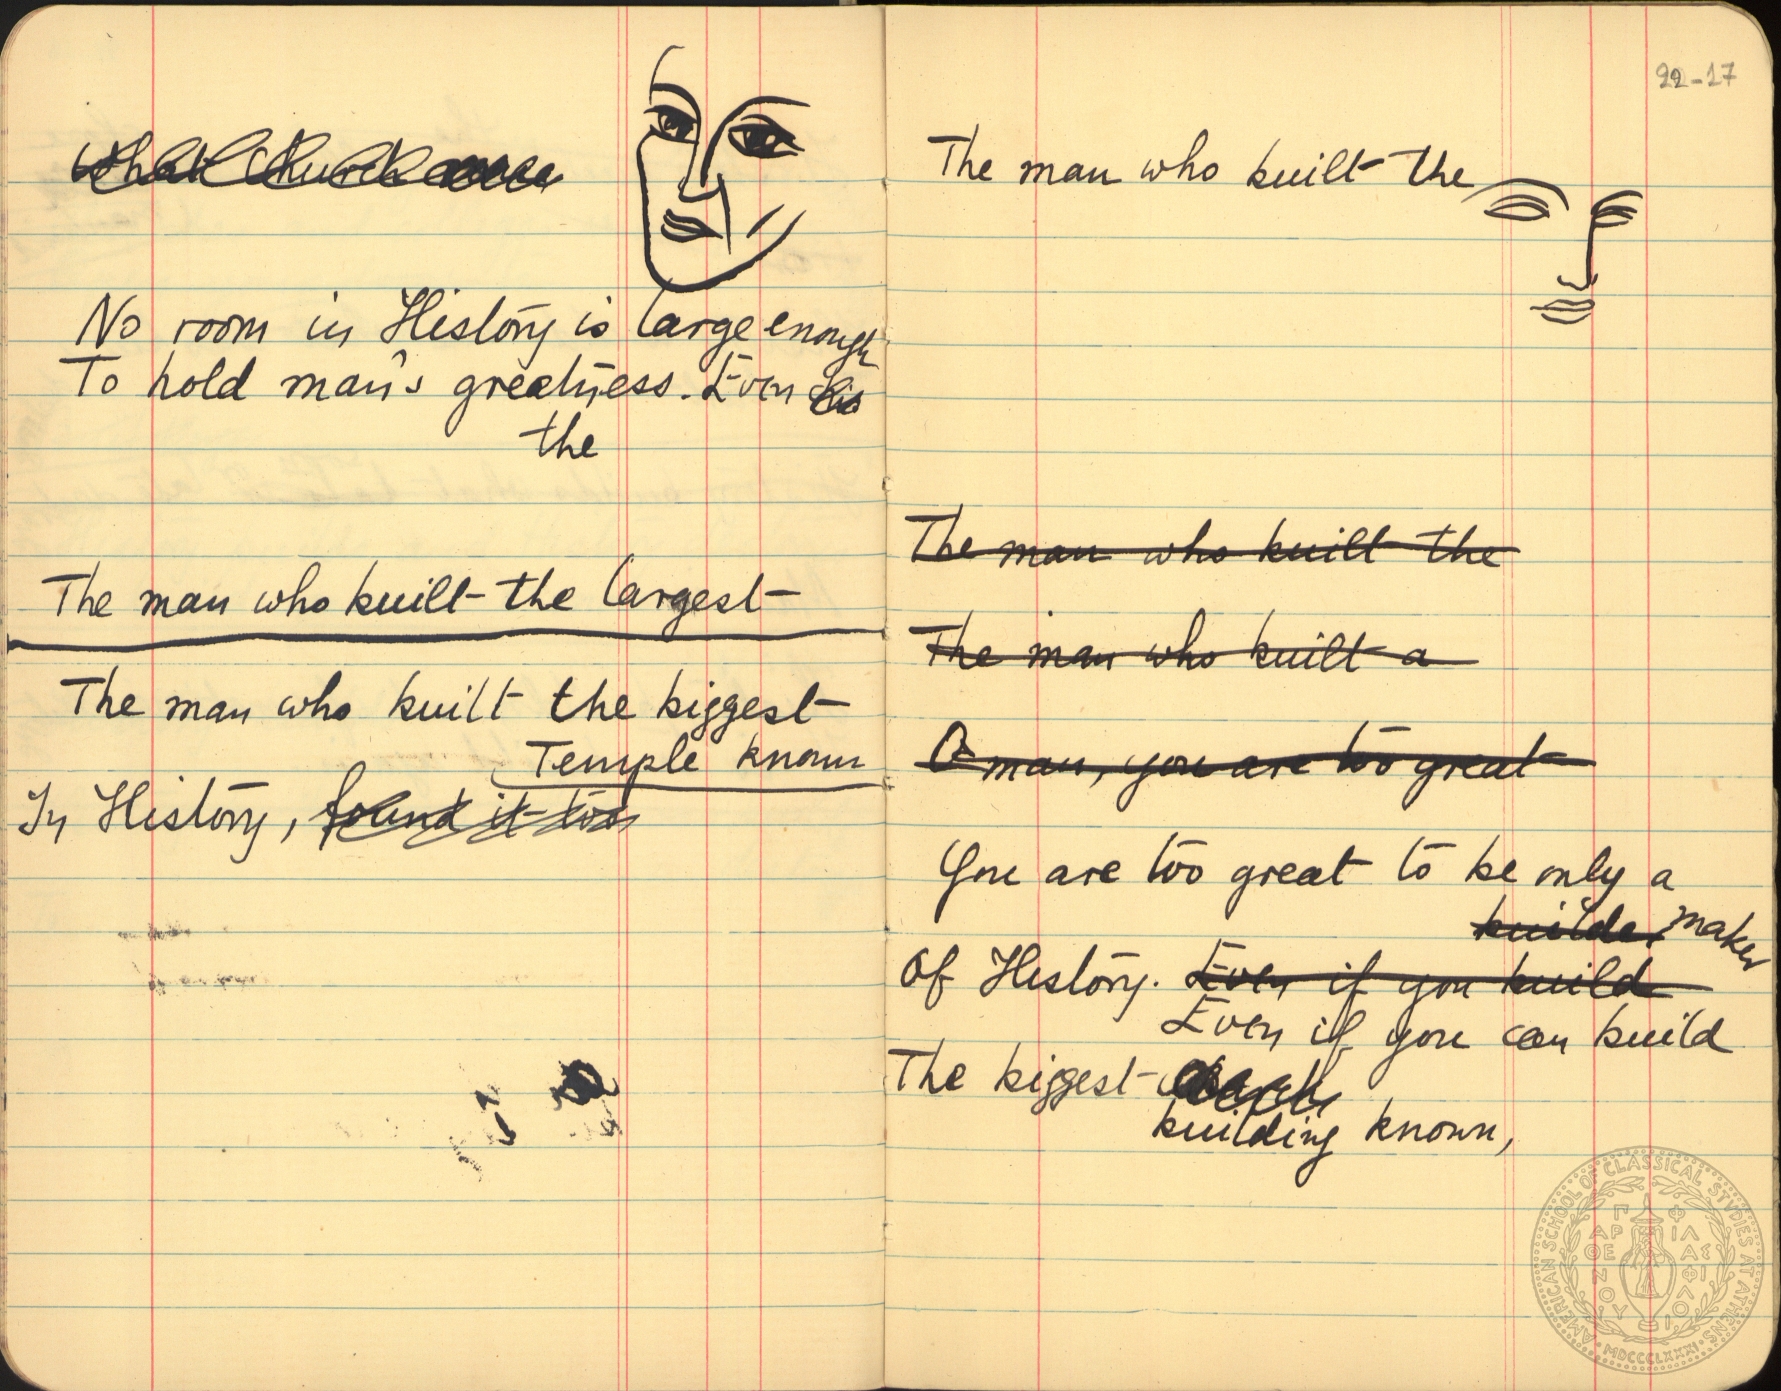 What Church
No room in History is large enough
To hold man's greatness. Even his
the
The man who built the largest
The man who built the biggest
Temple known
In History, found it too
22-17
The man who built the
The man who built the
The man who built a
O man, you are too great
You are too great to be only a
builder maker
Of History. Even if you build
Even if you can build
The biggest
building known,
AMERICAN SCHOOL OF CLASSICAL STVDIES AT ATHENS
ΠΑΡΘΕΝΟΥ ΦΙΛΑΣ ΦΙΛΟ
MDCCCLXXXI